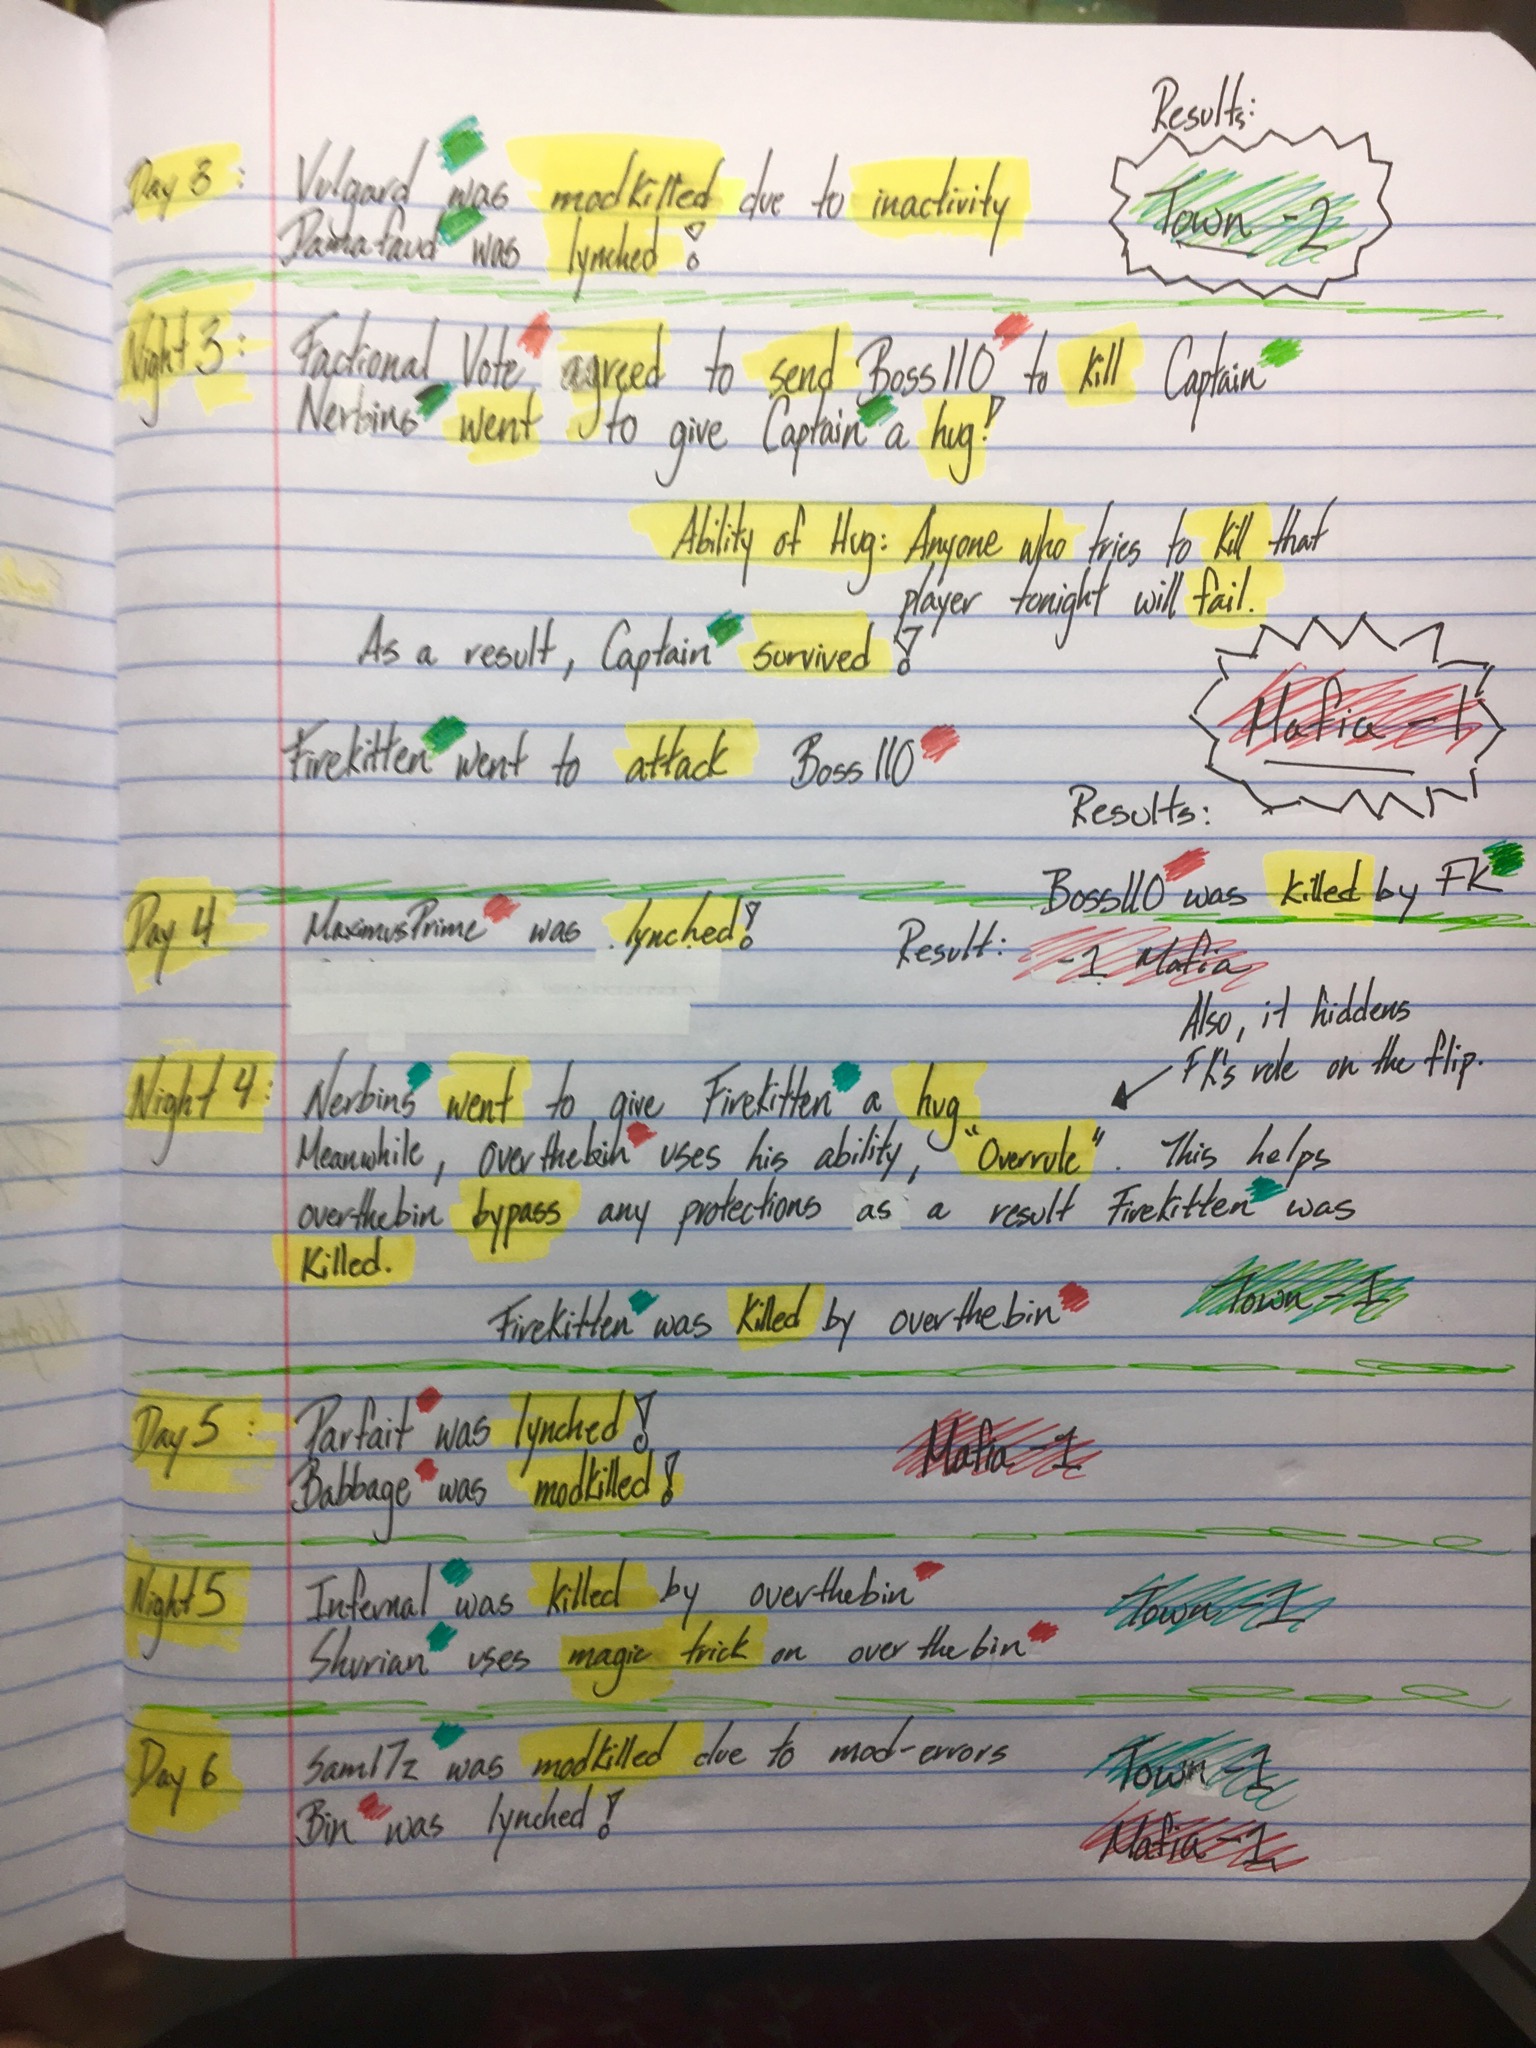 Results:
Day 3: Vulgard was modkilled due to inactivity
Town -2
Damafaud was lynched!
Night 3: Factional Vote agreed to send Boss110 to kill Captain
Nerbins went to give Captain a hug!
Ability of Hug: Anyone who tries to kill that
player tonight will fail.
As a result, Captain survived!
Mafia -1
Firekitten went to attack Boss110
Results:
Boss110 was killed by FK
Day 4 MaximusPrime was lynched! Result: -1 Mafia
Also, it hiddens
FK's role on the flip.
Night 4: Nerbins went to give Firekitten a hug
Meanwhile, overthebin uses his ability, "Overrule". This helps
overthebin bypass any protections as a result Firekitten was
killed.
Firekitten was killed by overthebin Town -1
Day 5: Parfait was lynched!
Mafia -1
Babbage was modkilled!
Night 5 Infernal was killed by overthebin Town -1
Shurian uses magic trick on overthebin
Day 6 Sam17z was modkilled due to mod-errors Town -1
Bin was lynched! Mafia -1